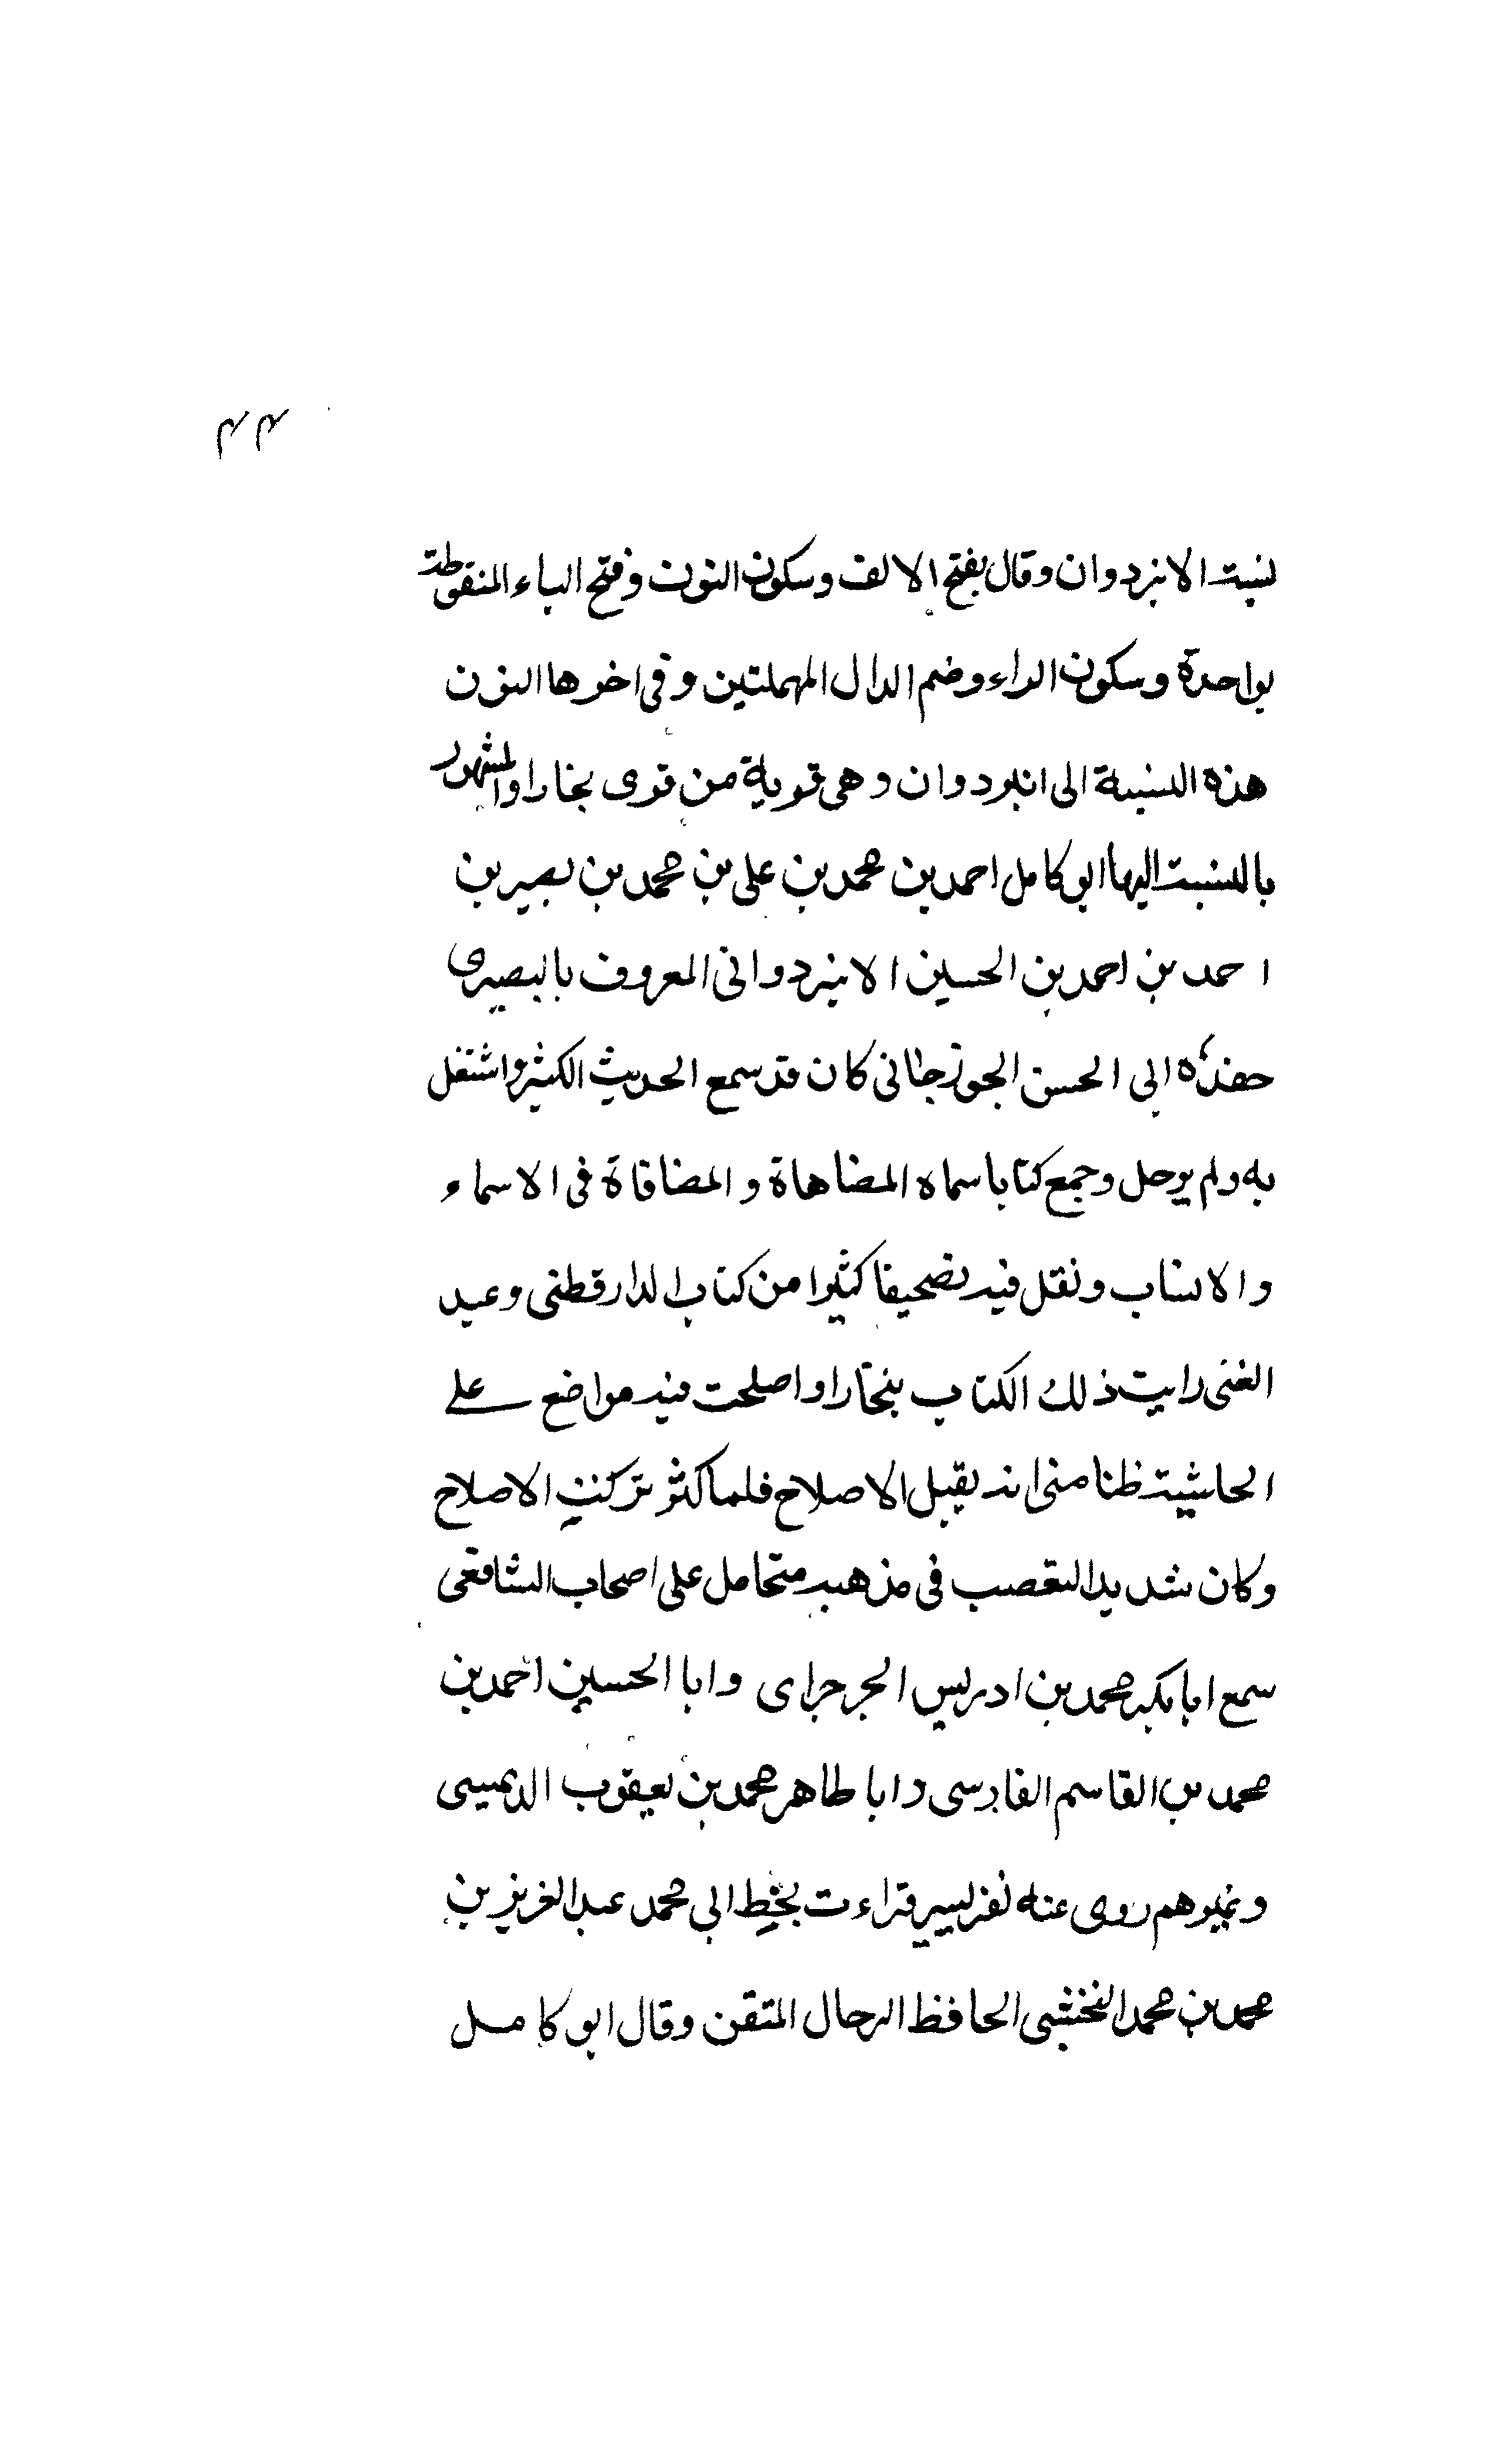 ۴۴
نسبة الانبردوان وقال بفتح الالف وسكون النون وفتح الباء المنقوطة
بواحدة وسكون الراء وضم الدال المهملتين وفى اخرها النون
هذه النسبة الى انبردوان وهى قرية من قرى بخارا والمشهور
بالنسبة اليها ابو كامل احمد بن محمد بن على بن محمد بن بصير بن
احمد بن احمد بن الحسين الانبردوانى المعروف بالبصيرى
حفدة ابى الحسن الجوزجانى كان قد سمع الحديث الكثير واشتغل
به ولم يرحل وجمع كتابا سماه المضاهاة والمضافاة فى الاسماء
والانساب ونقل فيه تصحيفا كثيرا من كتاب الدارقطنى وعبد
الغنى رايت ذلك الكتاب ببخارا واصلحت فيه مواضع على
الحاشية ظنا منى انه يقبل الاصلاح فلما كثر تركت الاصلاح
وكان شديد التعصب فى مذهبه متحامل على اصحاب الشافعى
سمع ابا بكر محمد بن ادريس الجرجراى وابا الحسين احمد بن
محمد بن القاسم الفارسى وابا طاهر محمد بن يعقوب الديمسى
وغيرهم روى عنه نفر يسير قراءت بخط ابى محمد عبد العزيز بن
محمد بن محمد النخشبى الحافظ الرحال المتقن وقال ابو كامل